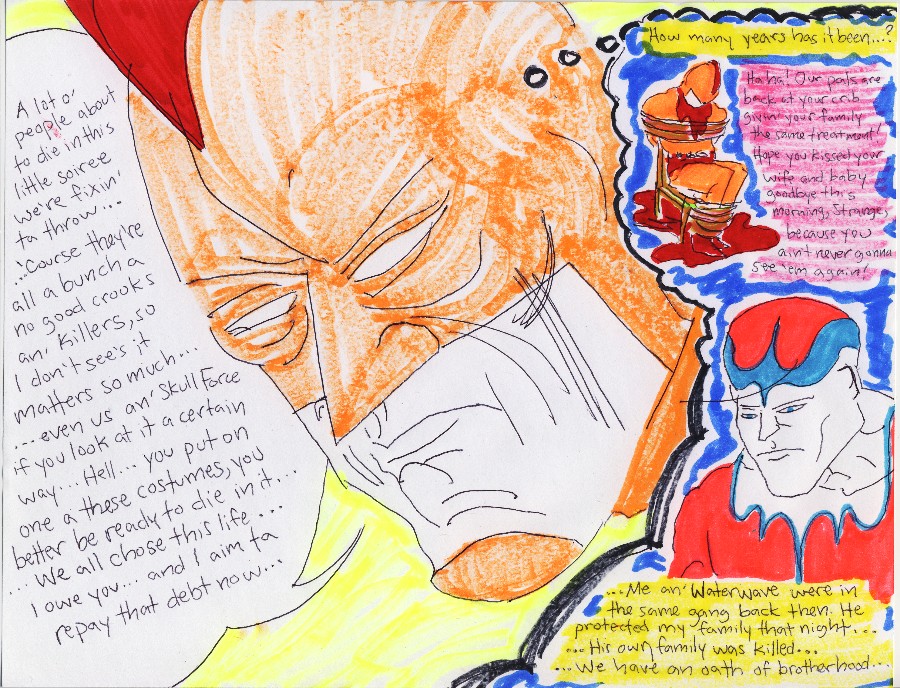 A lot o'
people about
to die in this
little soiree
we're fixin'
ta throw...
...Course they're
all a bunch a
no good crooks
an' killers, so
I don't see's it
matters so much...
...even us an' Skull Force
if you look at it a certain
way... Hell... you put on
one a these costumes, you
better be ready to die in it...
... We all chose this life ...
I owe you... and I aim ta
repay that debt now...
How many years has it been...?
Ha ha! Our pals are
back at your crib
givin' your family
the same treatment!
Hope you kissed your
wife and baby
goodbye this
morning, Strange,
because you
ain't never gonna
see 'em again!
...Me an' Waterwave were in
the same gang back then. He
protected my family that night...
... His own family was killed...
...We have an oath of brotherhood...